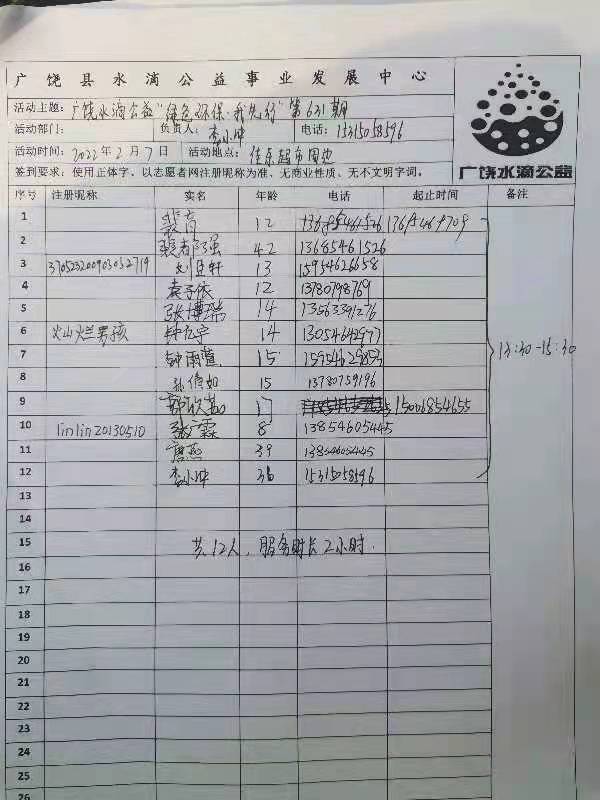 广饶县水滴公益事业发展中心
活动主题：广饶水滴公益“绿色环保·我先行”第631期
活动部门： 负责人：李小冲 电话：15315058596
活动时间：2022年2月7日 活动地点：佳乐超市周边
签到要求：使用正体字，以志愿者网注册昵称为准、无商业性质、无不文明字词。
广饶水滴公益
序号 注册昵称 实名 年龄 电话 起止时间 备注
1 12
2 42 13685461526
3 刘臣轩 13 15954626658
4 袁子依 12 13780798769
5 张博瑞 14 13563391276
6 火山烂男孩 14 13054642977
7 钟雨萱 15
8 15 13780759196
9 17 15006854655
10 linlin20130510 张霖 8 13854605445
11 39 13854605445
12 李小冲 36 15315058596
13:30-15:30
13
14
15 共12人，服务时长2小时.
16
17
18
19
20
21
22
23
24
25
26